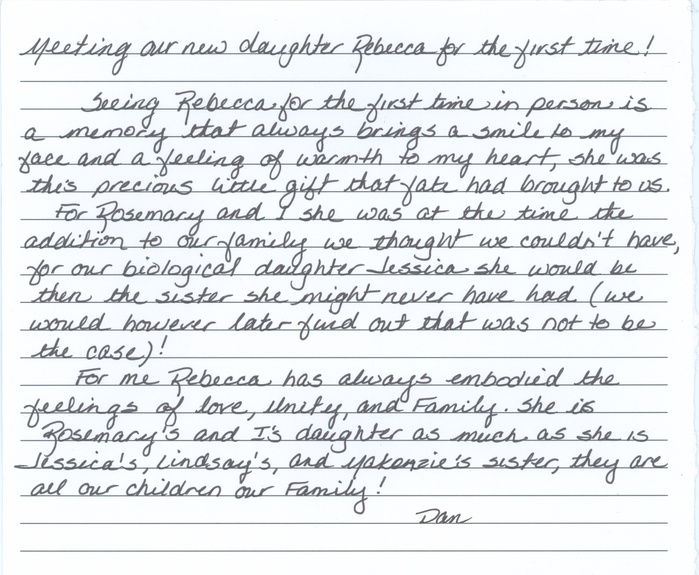 Meeting our new daughter Rebecca for the first time!
Seeing Rebecca for the first time in person is
a memory that always brings a smile to my
face and a feeling of warmth to my heart, she was
this precious little gift that fate had brought to us.
For Rosemary and I she was at the time the
addition to our family we thought we couldn't have,
for our biological daughter Jessica she would be
then the sister she might never have had (we
would however later find out that was not to be
the case)!
For me Rebecca has always embodied the
feelings of love, Unity, and Family. She is
Rosemary's and I's daughter as much as she is
Jessica's, Lindsay's, and Makenzie's sister, they are
all our children our Family!
Dan